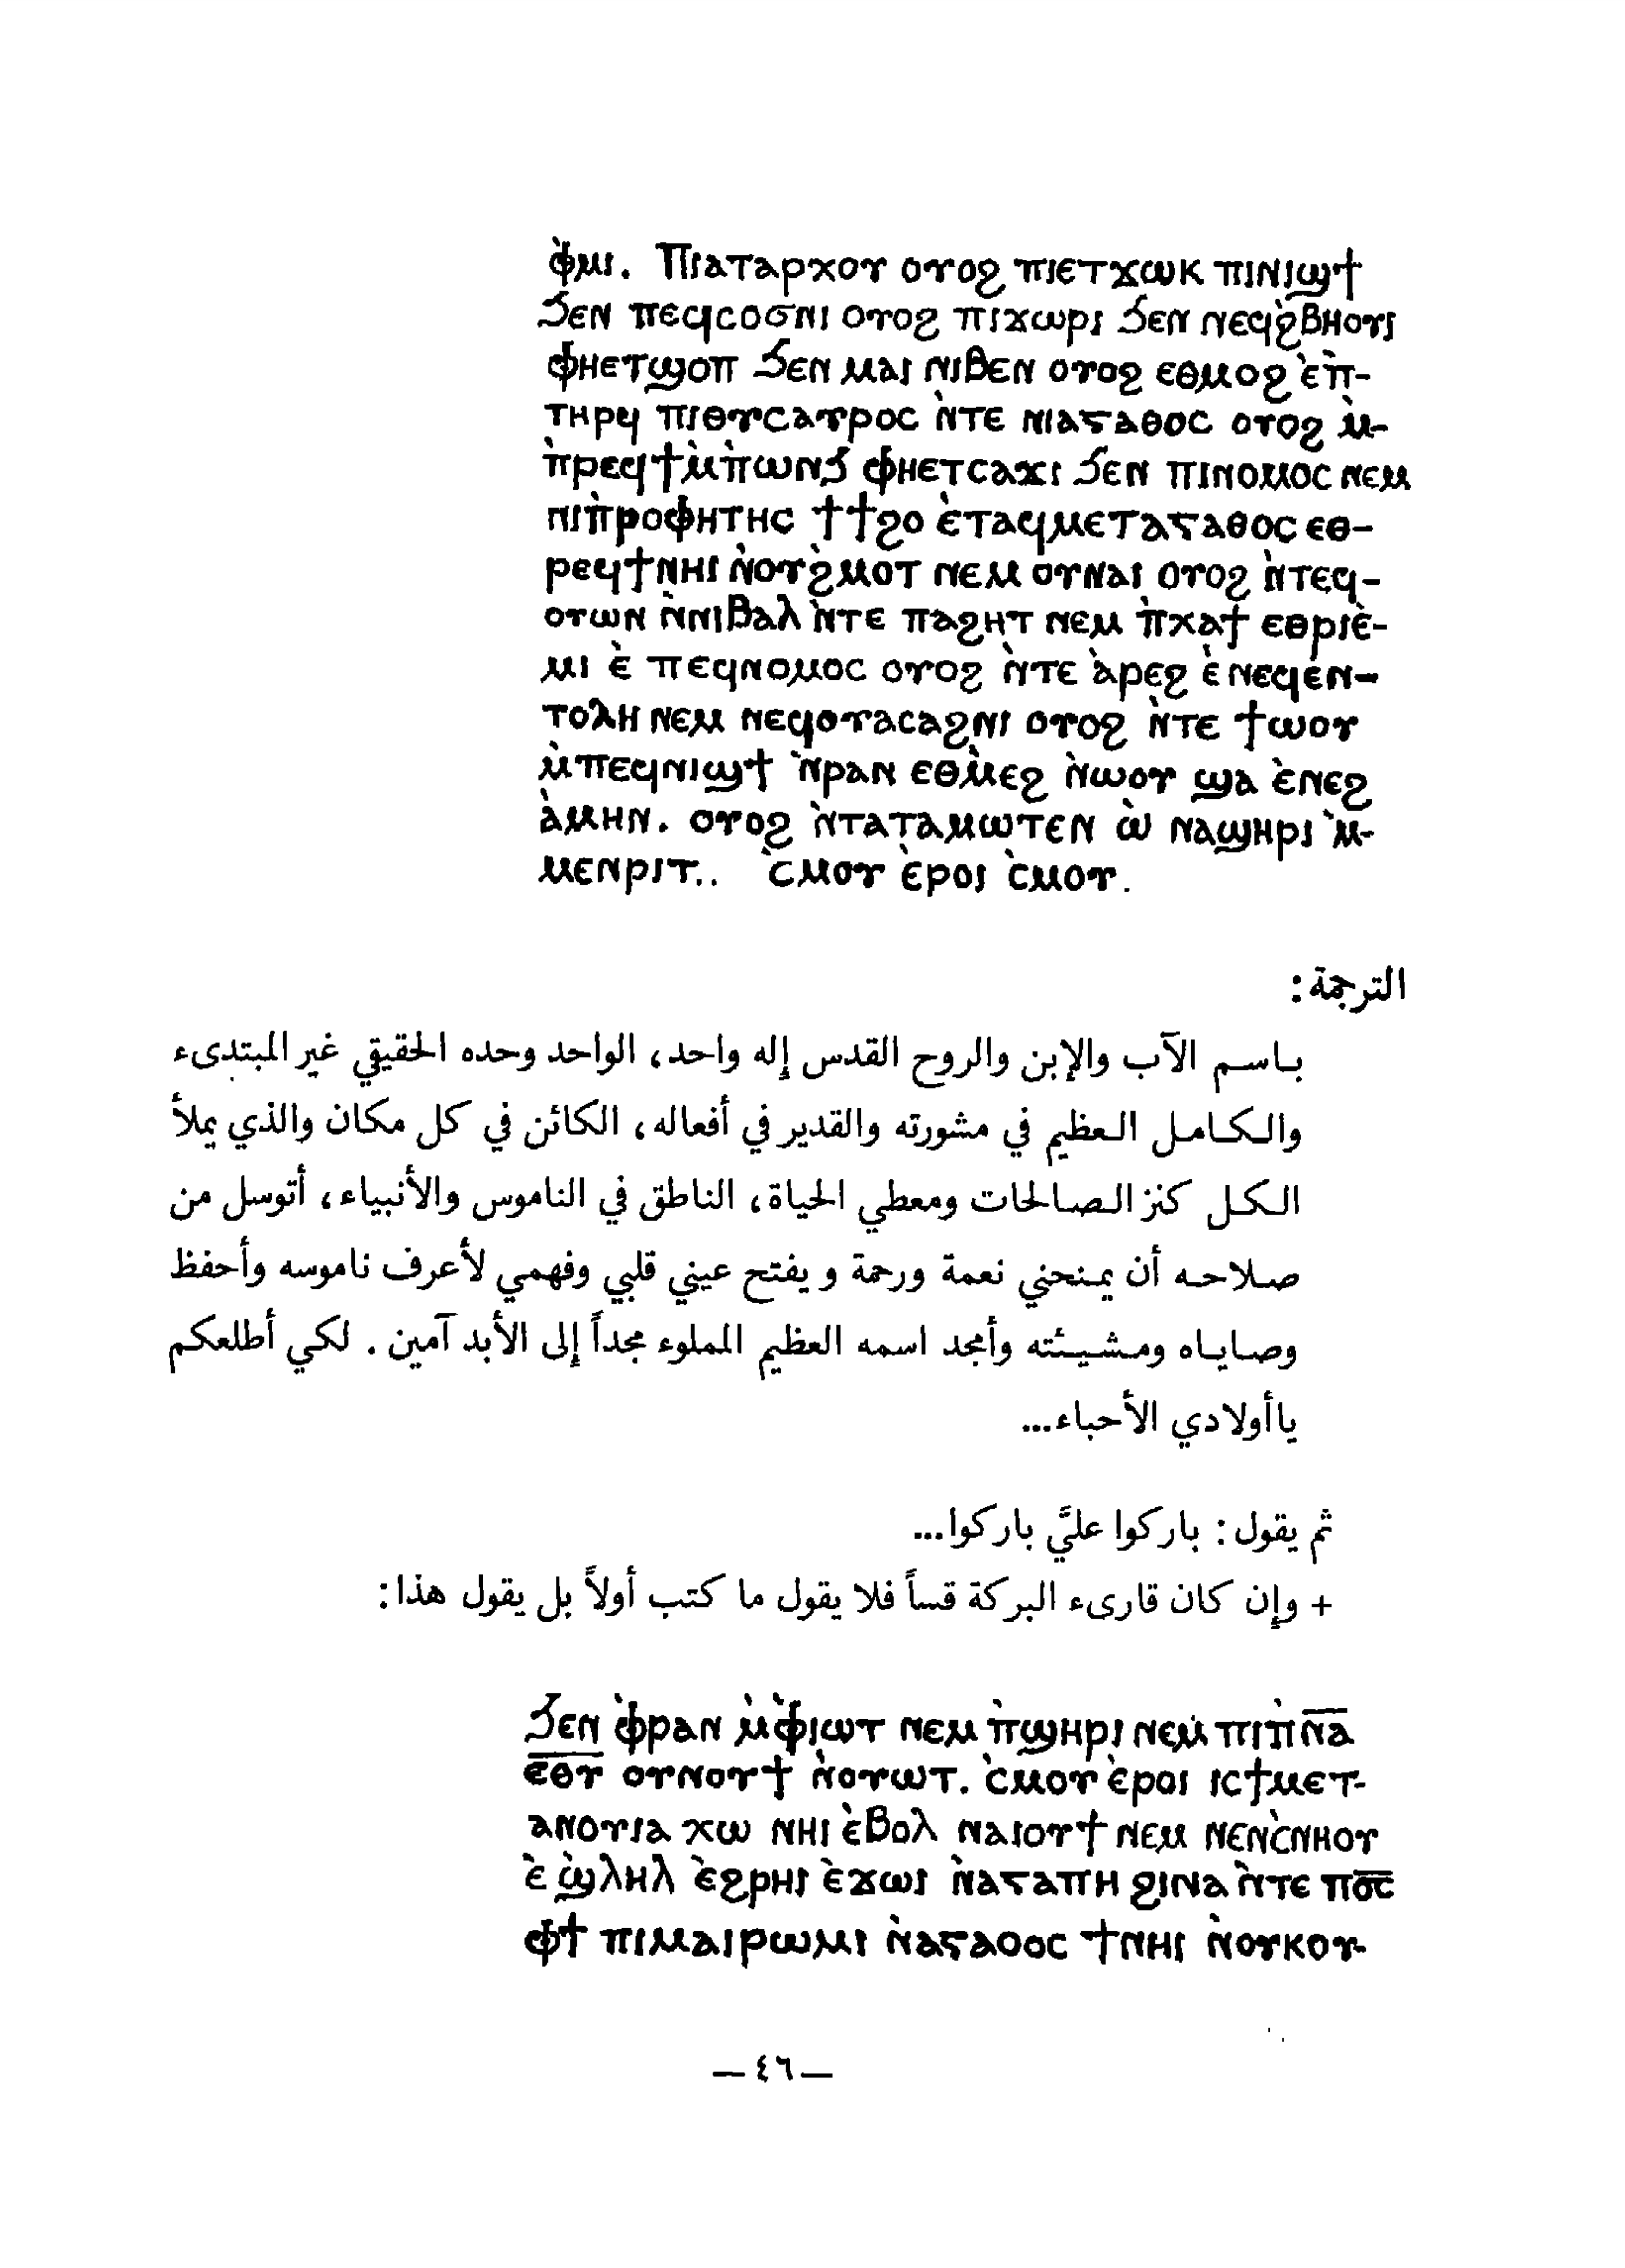 ⲫ̀ⲙⲓ. Ⲡⲓⲁⲧⲁⲣⲭⲟⲩ ⲟⲩⲟϩ ⲡⲓⲉⲧϫⲱⲕ ⲡⲓⲛⲓϣϯ
ϧⲉⲛ ⲡⲉϥⲥⲟϭⲛⲓ ⲟⲩⲟϩ ⲡⲓϫⲱⲣⲓ ϧⲉⲛ ⲛⲉϥϩ̀ⲃⲏⲟⲩⲓ
ⲫⲏⲉⲧϣⲟⲡ ϧⲉⲛ ⲙⲁⲓ ⲛⲓⲃⲉⲛ ⲟⲩⲟϩ ⲉⲑⲙⲟϩ ⲉ̀ⲡ̀-
ⲧⲏⲣϥ ⲡⲓⲑⲩⲥⲁⲩⲣⲟⲥ ⲛ̀ⲧⲉ ⲛⲓⲁⲅⲁⲑⲟⲥ ⲟⲩⲟϩ ⲙ̀-
ⲡ̀ⲣⲉϥϯⲙ̀ⲡ̀ⲱⲛϧ ⲫⲏⲉⲧⲥⲁϫⲓ ϧⲉⲛ ⲡⲓⲛⲟⲙⲟⲥ ⲛⲉⲙ
ⲛⲓⲡ̀ⲣⲟⲫⲏⲧⲏⲥ ϯϯϩⲟ ⲉ̀ⲧⲁϥⲙⲉⲧⲁⲅⲁⲑⲟⲥ ⲉⲑ-
ⲣⲉϥϯⲛⲏⲓ ⲛ̀ⲟⲩϩ̀ⲙⲟⲧ ⲛⲉⲙ ⲟⲩⲛⲁⲓ ⲟⲩⲟϩ ⲛ̀ⲧⲉϥ-
ⲟⲩⲱⲛ ⲛ̀ⲛⲓⲃⲁⲗ ⲛ̀ⲧⲉ ⲡⲁϩⲏⲧ ⲛⲉⲙ ⲡ̀ⲭⲁϯ ⲉⲑⲣⲓⲉ̀-
ⲙⲓ ⲉ̀ ⲡⲉϥⲛⲟⲙⲟⲥ ⲟⲩⲟϩ ⲛ̀ⲧⲉ ⲁ̀ⲣⲉϩ ⲉ̀ⲛⲉϥⲉⲛ̀-
ⲧⲟⲗⲏ ⲛⲉⲙ ⲛⲉϥⲟⲩⲁⲥⲁϩⲛⲓ ⲟⲩⲟϩ ⲛ̀ⲧⲉ ϯⲱⲟⲩ
ⲙ̀ⲡⲉϥⲛⲓϣϯ ⲛ̀ⲣⲁⲛ ⲉⲑⲙ̀ⲉϩ ⲛ̀ⲱⲟⲩ ϣⲁ ⲉ̀ⲛⲉϩ
ⲁ̀ⲙⲏⲛ. ⲟⲩⲟϩ ⲛ̀ⲧⲁⲧⲁⲙⲱⲧⲉⲛ ⲱ̀ ⲛⲁϣⲏⲣⲓ ⲙ̀-
ⲙⲉⲛⲣⲓⲧ.. ⲥ̀ⲙⲟⲩ ⲉ̀ⲣⲟⲓ ⲥ̀ⲙⲟⲩ.
الترجمة:
باسم الآب والإبن والروح القدس إله واحد، الواحد وحده الحقيقي غير المبتدىء
والكامل العظيم في مشورته والقدير في أفعاله، الكائن في كل مكان والذي يملأ
الكل كنز الصالحات ومعطي الحياة، الناطق في الناموس والأنبياء، أتوسل من
صلاحه أن يمنحني نعمة ورحمة ويفتح عيني قلبي وفهمي لأعرف ناموسه وأحفظ
وصاياه ومشيئته وأمجد اسمه العظيم المملوء مجداً إلى الأبد آمين. لكي أطلعكم
ياأولادي الأحباء...
ثم يقول: باركوا عليَّ باركوا...
+ وإن كان قارىء البركة قساً فلا يقول ما كتب أولاً بل يقول هذا:
ϧⲉⲛ ⲫ̀ⲣⲁⲛ ⲙ̀ⲫ̀ⲓⲱⲧ ⲛⲉⲙ ⲡ̀ϣⲏⲣⲓ ⲛⲉⲙ ⲡⲓⲡ̀ⲛ̅ⲁ̅
ⲉ̅ⲑ̅ⲩ̅ ⲟⲩⲛⲟⲩϯ ⲛ̀ⲟⲩⲱⲧ. ⲥ̀ⲙⲟⲩ ⲉ̀ⲣⲟⲓ ⲓⲥϯⲙⲉⲧ-
ⲁⲛⲟⲩⲓⲁ ⲭⲱ ⲛⲏⲓ ⲉ̀ⲃⲟⲗ ⲛⲁⲓⲟⲩϯ ⲛⲉⲙ ⲛⲉⲛⲥ̀ⲛⲏⲟⲩ
ⲉ̀ ϣ̀ⲗⲏⲗ ⲉ̀ϩⲣⲏⲓ ⲉ̀ϫⲱⲓ ⲛ̀ⲁⲅⲁⲡⲏ ϩⲓⲛⲁ ⲛ̀ⲧⲉ ⲡϭ̅ⲥ̅
ⲫϯ ⲡⲓⲙⲁⲓⲣⲱⲙⲓ ⲛ̀ⲁⲅⲁⲟⲟⲥ ϯⲛⲏⲓ ⲛ̀ⲟⲩⲕⲟⲩ-
— ٤٦ —